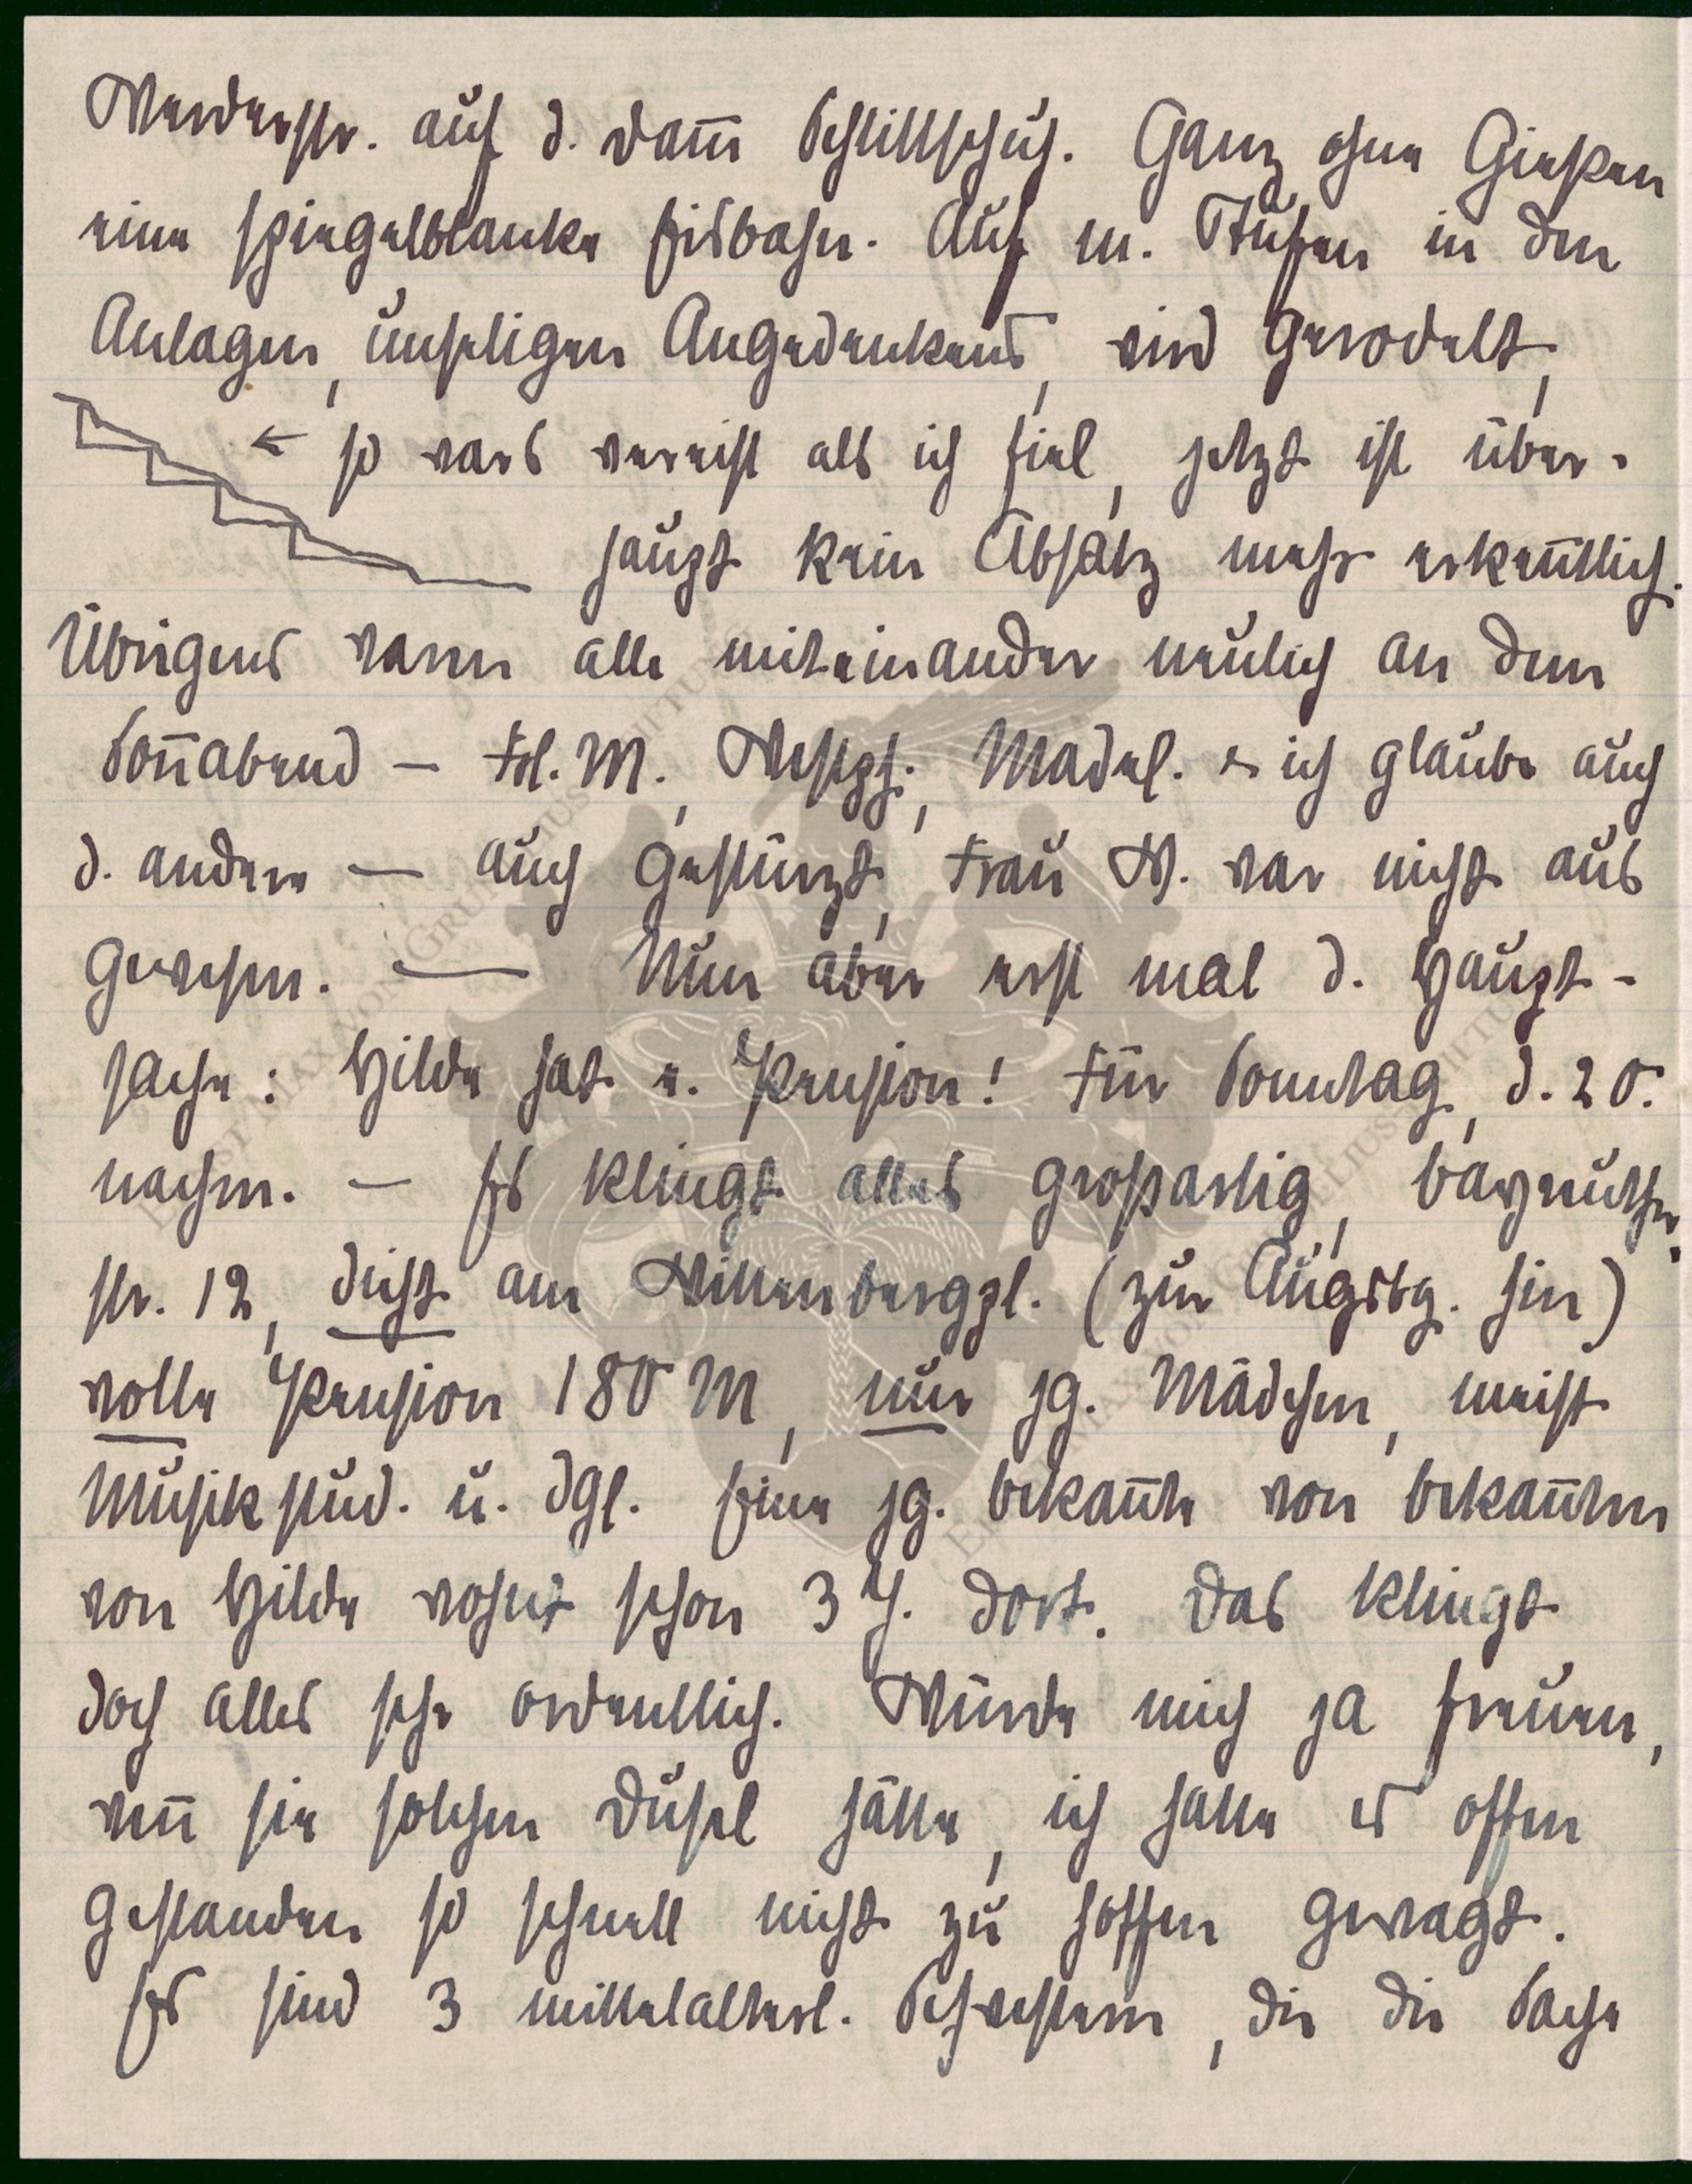 Werderstr. auf d. Dam̅ Schlittschuh. Ganz ohne Gießen
eine spiegelblanke Eisbahn. Auf m. Stufen in den
Anlagen, unseligen Angedenkens, wird gerodelt,
← so war's vereist als ich fiel, jetzt ist über-
haupt kein Absatz mehr erken̅tlich.
Übrigens waren alle miteinander neulich an dem
Son̅abend – Frl. M., Westph., Madel. & ich glaube auch
d. andere – auch gestürzt, Frau W. war nicht aus
gewesen. — Nun aber erst mal d. Haupt-
sache: Hilde hat e. Pension! Für Sonntag, d. 20.
nachm. – Es klingt alles großartig, Bayreuther
str. 12, dicht am Wittenbergpl. (zur Augsbg. hin)
volle Pension 180 M, nur jg. Mädchen, meist
Musikstud. u. dgl. Eine jg. Bekan̅te von Bekan̅ten
von Hilde wohnt schon 3 J. dort. Das klingt
doch alles sehr ordentlich. Würde mich ja freuen,
wen̅ sie solchen Dusel hätte, ich hatte es offen
gestanden so schnell nicht zu hoffen gewagt.
Es sind 3 mittelalterl. Schwestern, die die Sache